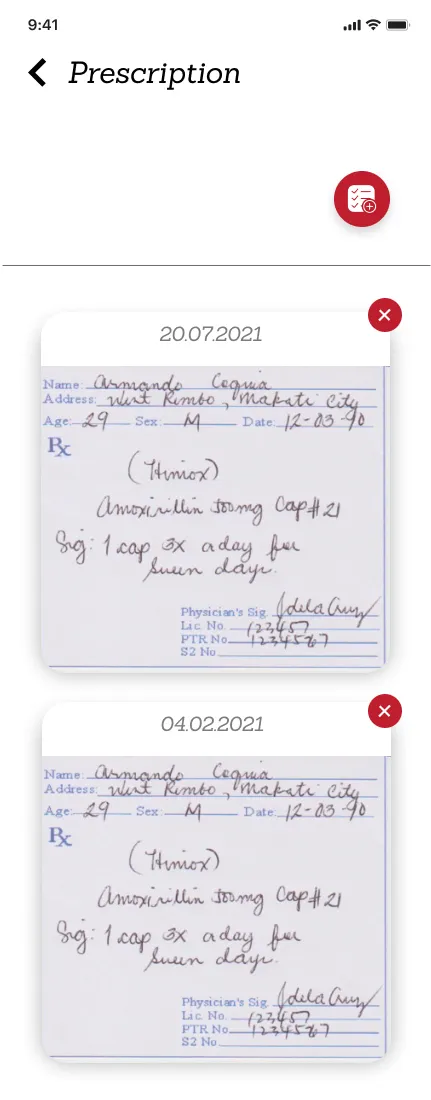 9:41
Prescription
20.07.2021
Name: Armando Coquia
Address: West Rembo, Makati City
Age: 29 Sex: M Date: 12-03-90
Rx
(Himox)
Amoxicillin 500mg Cap #21
Sig: 1 cap 3x a day for
seven days.
Physician's Sig. Jdela Cruz
Lic. No. 123457
PTR No. 1234567
S2 No.
04.02.2021
Name: Armando Coquia
Address: West Rembo, Makati City
Age: 29 Sex: M Date: 12-03-90
Rx
(Himox)
Amoxicillin 500mg Cap #21
Sig: 1 cap 3x a day for
seven days.
Physician's Sig. Jdela Cruz
Lic. No. 123457
PTR No. 1234567
S2 No.